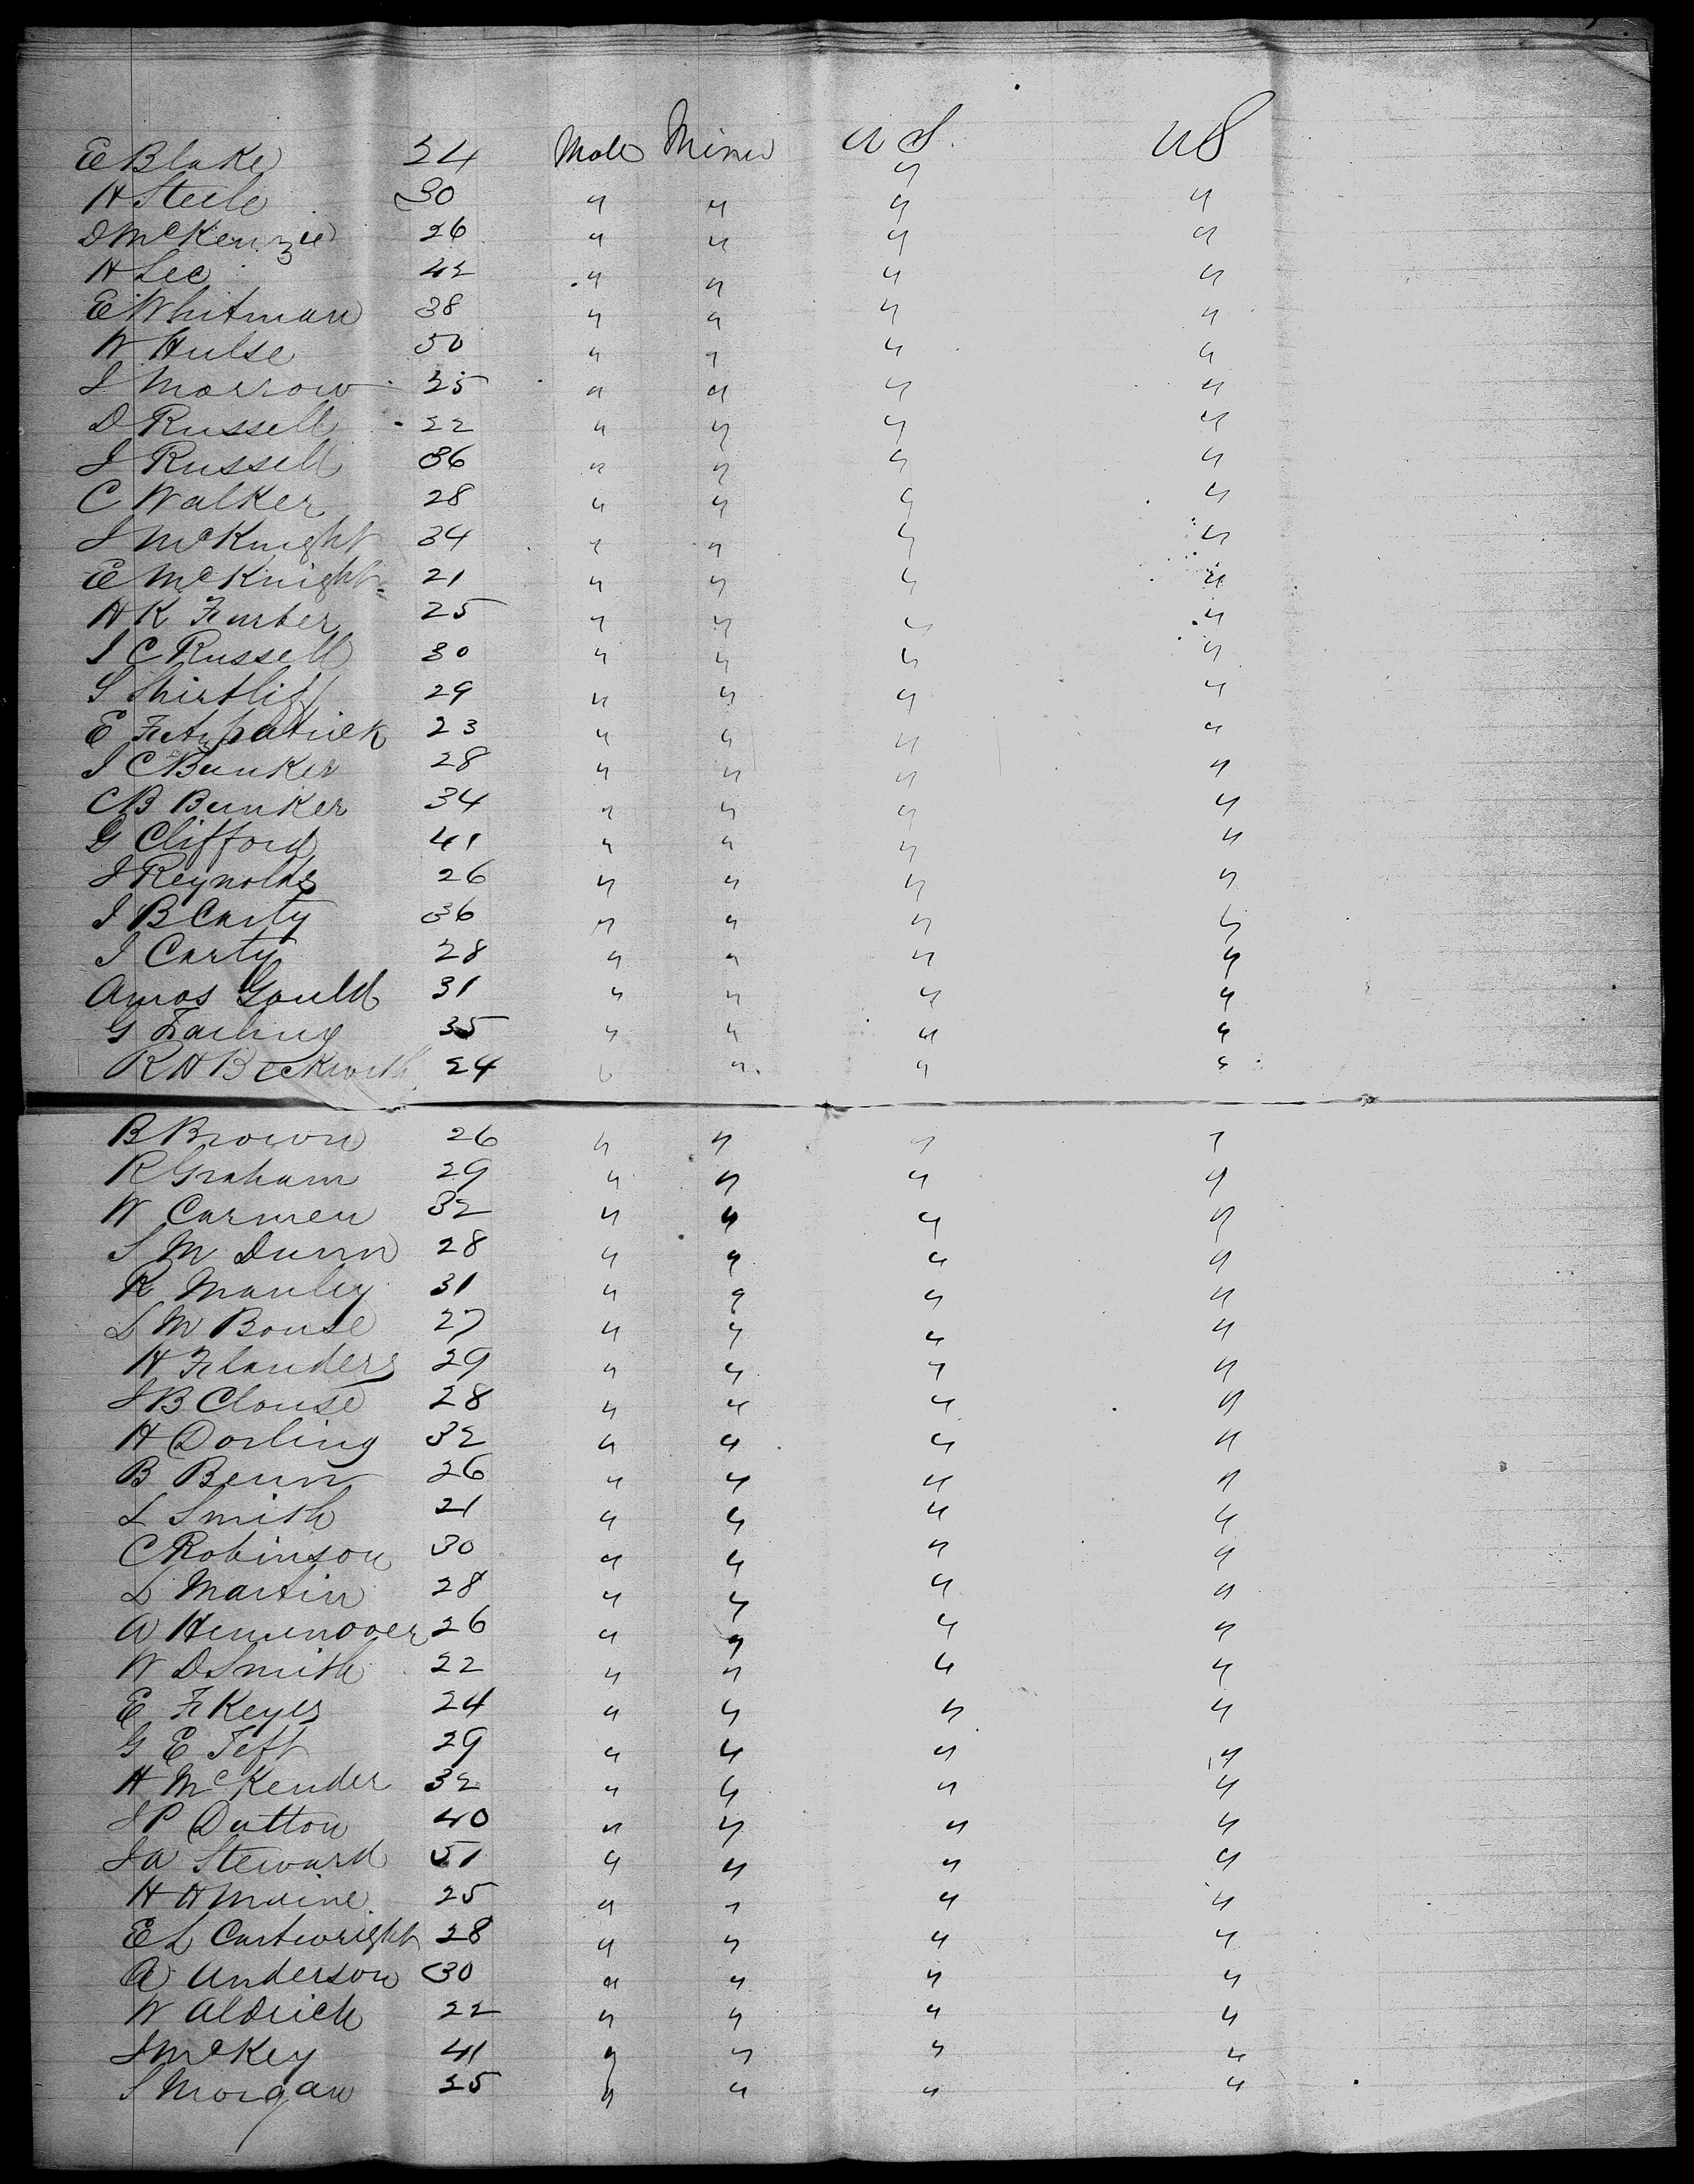 E Blake 24 Male Miner U S. U S
H Steele 30 " " " "
D McKenzie 26 " " " "
H Lee 42 " " " "
E Whitman 38 " " " "
W Hulse 50 " " " "
J Morrow 25 " " " "
D Russell 22 " " " "
J Russell 36 " " " "
C Walker 28 " " " "
J McKnight 34 " " " "
E McKnight 21 " " " "
H K Furber 25 " " " "
J C Russell 30 " " " "
S Shirtliff 29 " " " "
E Fitzpatrick 23 " " " "
J C Bunker 28 " " " "
C B Bunker 34 " " " "
G Clifford 41 " " " "
J Reynolds 26 " " " "
J B Carty 36 " " " "
J Carty 28 " " " "
Amos Gould 31 " " " "
G Farling 35 " " " "
R H Beckwith 24 " " " "
B Brown 26 " " " "
R Graham 29 " " " "
W Carmen 32 " " " "
S M Dunn 28 " " " "
R Manley 31 " " " "
L M Bouse 27 " " " "
H Flanders 29 " " " "
J B Clouse 28 " " " "
H Dorling 32 " " " "
B Benn 26 " " " "
L Smith 21 " " " "
C Robinson 30 " " " "
L Martin 28 " " " "
A Hemenover 26 " " " "
W D Smith 22 " " " "
E F Keyes 24 " " " "
G E Teft 29 " " " "
H McKender 32 " " " "
J P Dutton 40 " " " "
J A Steward 51 " " " "
H H Maine 25 " " " "
E L Cartwright 28 " " " "
A Anderson 30 " " " "
W Aldrich 22 " " " "
J McKey 41 " " " "
S Morgan 25 " " " "